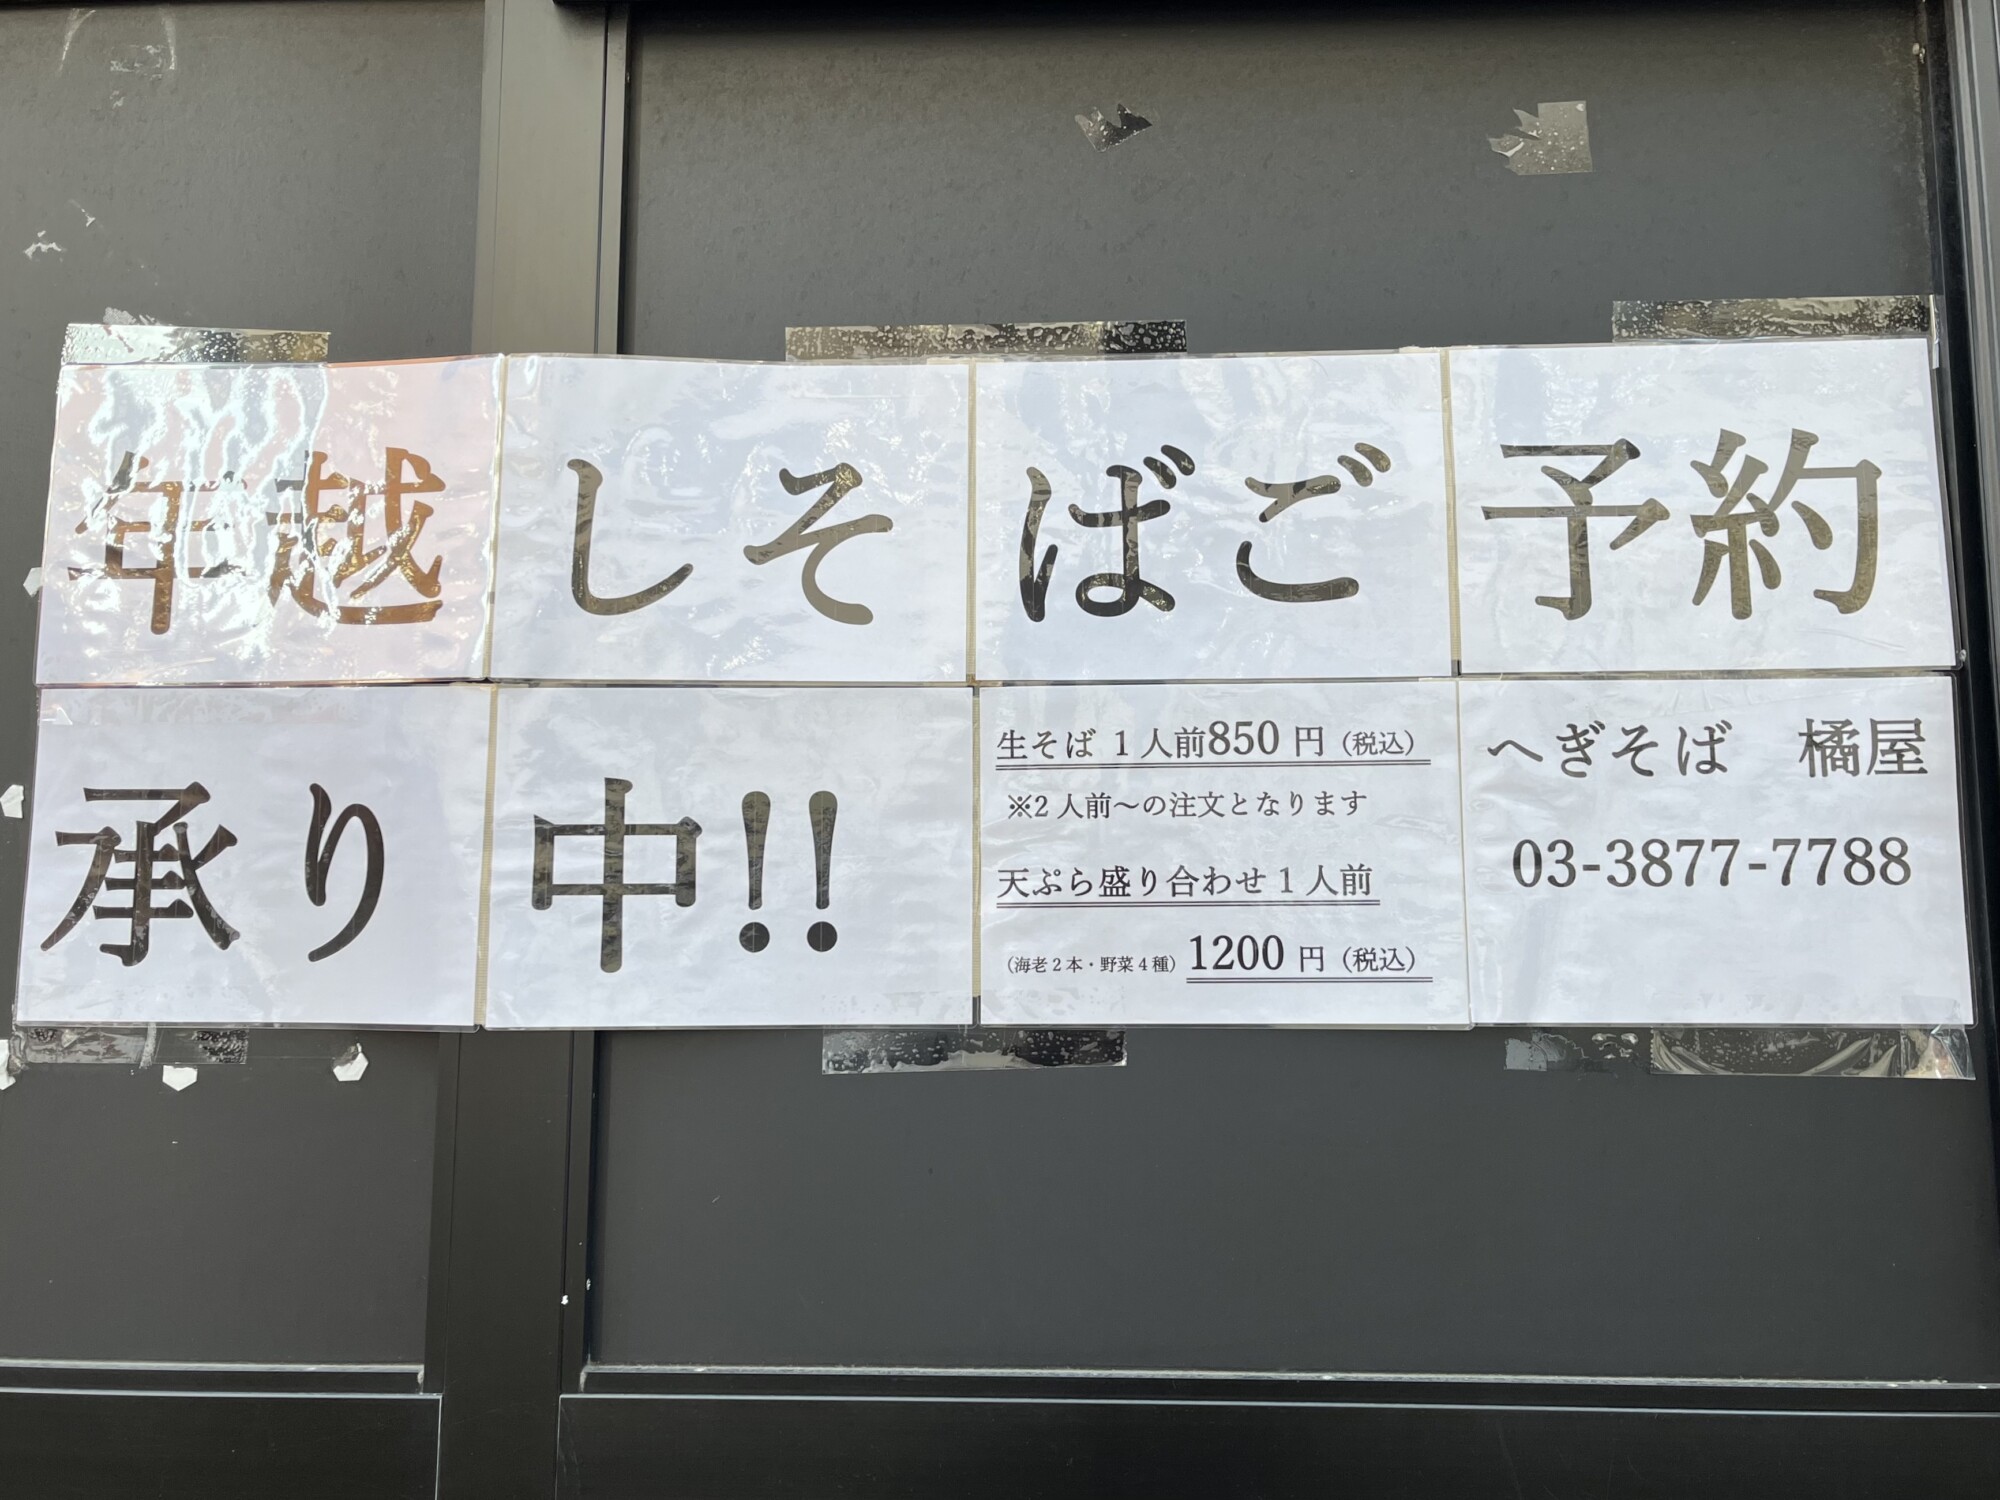 年越しそばご予約
承り中!!
生そば 1人前850円（税込）
※2人前～の注文となります
天ぷら盛り合わせ1人前
（海老2本・野菜4種）1200円（税込）
へぎそば　橘屋
03-3877-7788